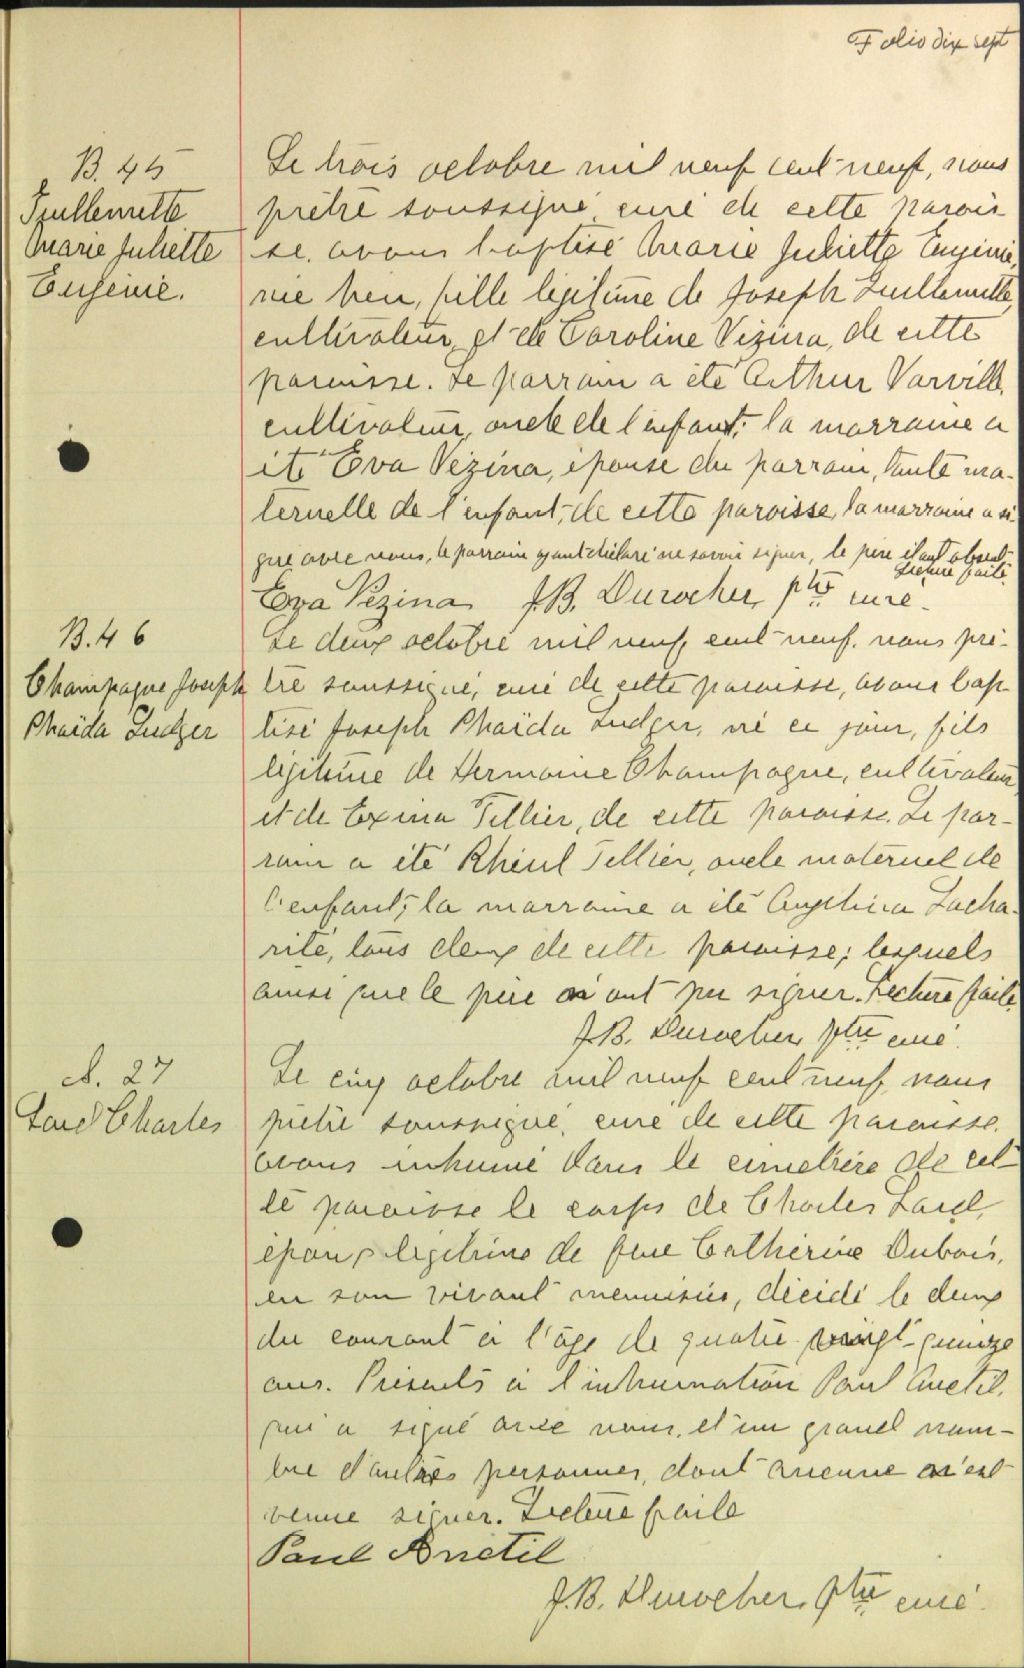 Folio dix sept
B. 45
Guillemette
Marie Juliette
Eugénie.
Le trois octobre mil neuf cent neuf, nous
prêtre soussigné, curé de cette parois
se, avons baptisé Marie Juliette Eugénie,
née hier, fille légitime de Joseph Guillemette,
cultivateur, et de Caroline Vézina, de cette
paroisse. Le parrain a été Arthur Varville,
cultivateur, oncle de l'enfant; la marraine a
été Eva Vézina, épouse du parrain, tante ma-
ternelle de l'enfant, de cette paroisse, la marraine a si-
gné avec nous, le parrain ayant déclaré ne savoir signer, le père étant absent
Lecture faite
Eva Vézina J.B. Durocher, ptre curé.
B. 46
Champagne Joseph
Phaïda Ludger
Le deux octobre mil neuf cent neuf, nous prê-
tre soussigné, curé de cette paroisse, avons bap-
tisé Joseph Phaïda Ludger, né ce jour, fils
légitime de Hermaine Champagne, cultivateur,
et de Exina Tellier, de cette paroisse. Le par-
rain a été Rhéul Tellier, oncle maternel de
l'enfant; la marraine a été Angélina Lacha-
rité, tous deux de cette paroisse; lesquels
ainsi que le père n'ont pu signer. Lecture faite
J.B. Durocher, ptre curé.
S. 27
Lord Charles
Le cinq octobre mil neuf cent neuf, nous
prêtre soussigné, curé de cette paroisse,
avons inhumé dans le cimetière de cet-
te paroisse le corps de Charles Lord,
époux légitime de feue Cathérine Dubois,
en son vivant menuisier, décédé le deux
du courant à l'âge de quatre vingt-quinze
ans. Présents à l'inhumation Paul Anctil,
qui a signé avec nous, et un grand nom-
bre d'autres personnes, dont aucune n'est
venue signer. Lecture faite
Paul Anctil
J.B. Durocher, ptre curé.